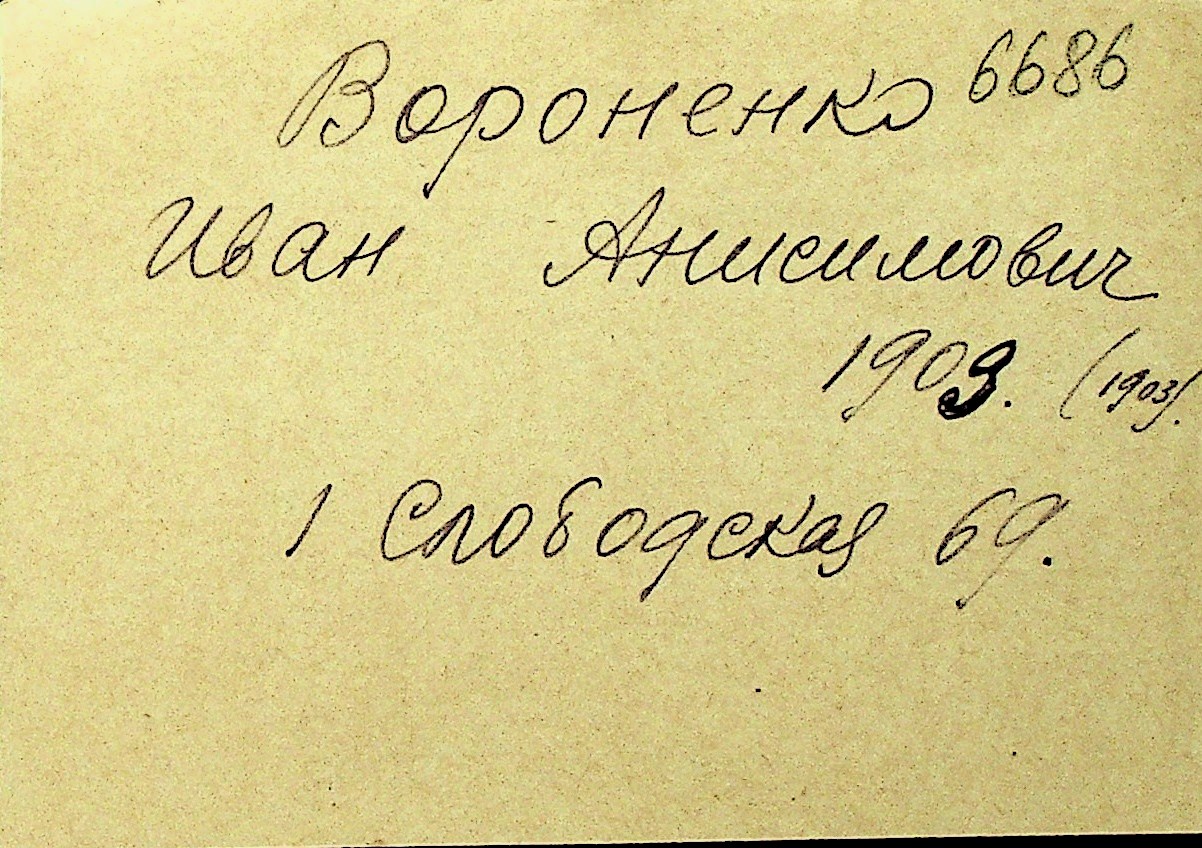 Вороненко 6686
Иван Анисимович
1903. (1903).
1 Слободская 69.